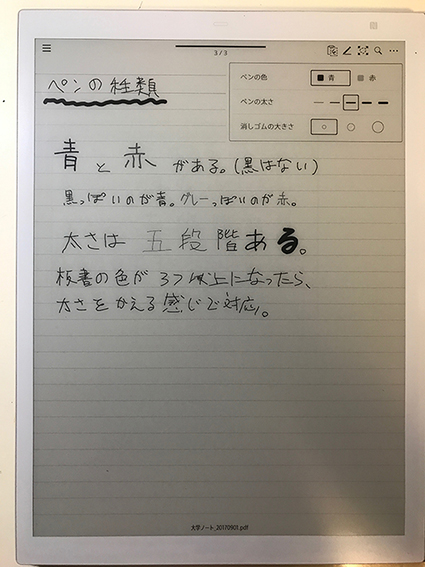 3 / 3
ペンの種類
ペンの色 青 赤
ペンの太さ
消しゴムの大きさ
青と赤がある。(黒はない)
黒っぽいのが青。グレーっぽいのが赤。
太さは五段階ある。
板書の色が3つ以上になったら、
太さをかえる感じで対応。
大学ノート_20170901.pdf